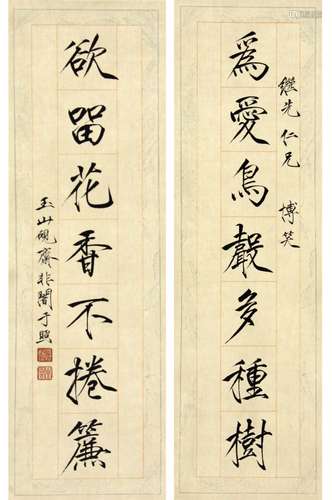 為愛鳥聲多種樹
繼先仁兄 博笑
欲留花香不捲簾
玉山硯齋非闇于照